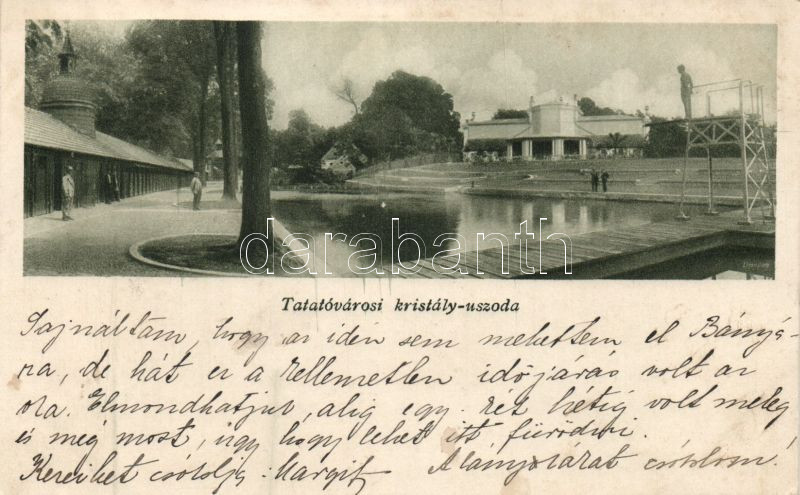 darabanth
Tatatóvárosi kristály-uszoda
Sajnáltam, hogy az idén sem mehettem el Bányá-
ra, de hát ez a kellemetlen időjárás volt az
oka. Elmondhatjuk, alig egy-két hétig volt meleg
és még most, úgy hogy lehet itt fürödni.
csókolja: Margit A lányokat csókolom.